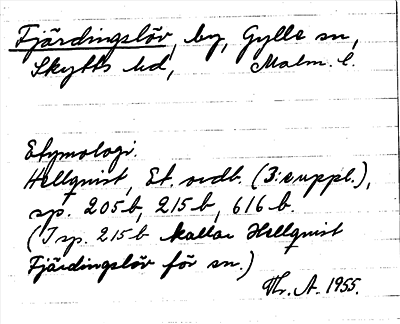 Fjärdingslöv, by, Gylle sn,
Skytts hd, Malm. l.
Etymologi.
Hellquist, Et. ordb. (3:suppl.),
sp. 205b, 215b, 616b.
(I sp. 215b kallar Hellquist
Fjärdingslöv för sn.)
Thr. A. 1955.